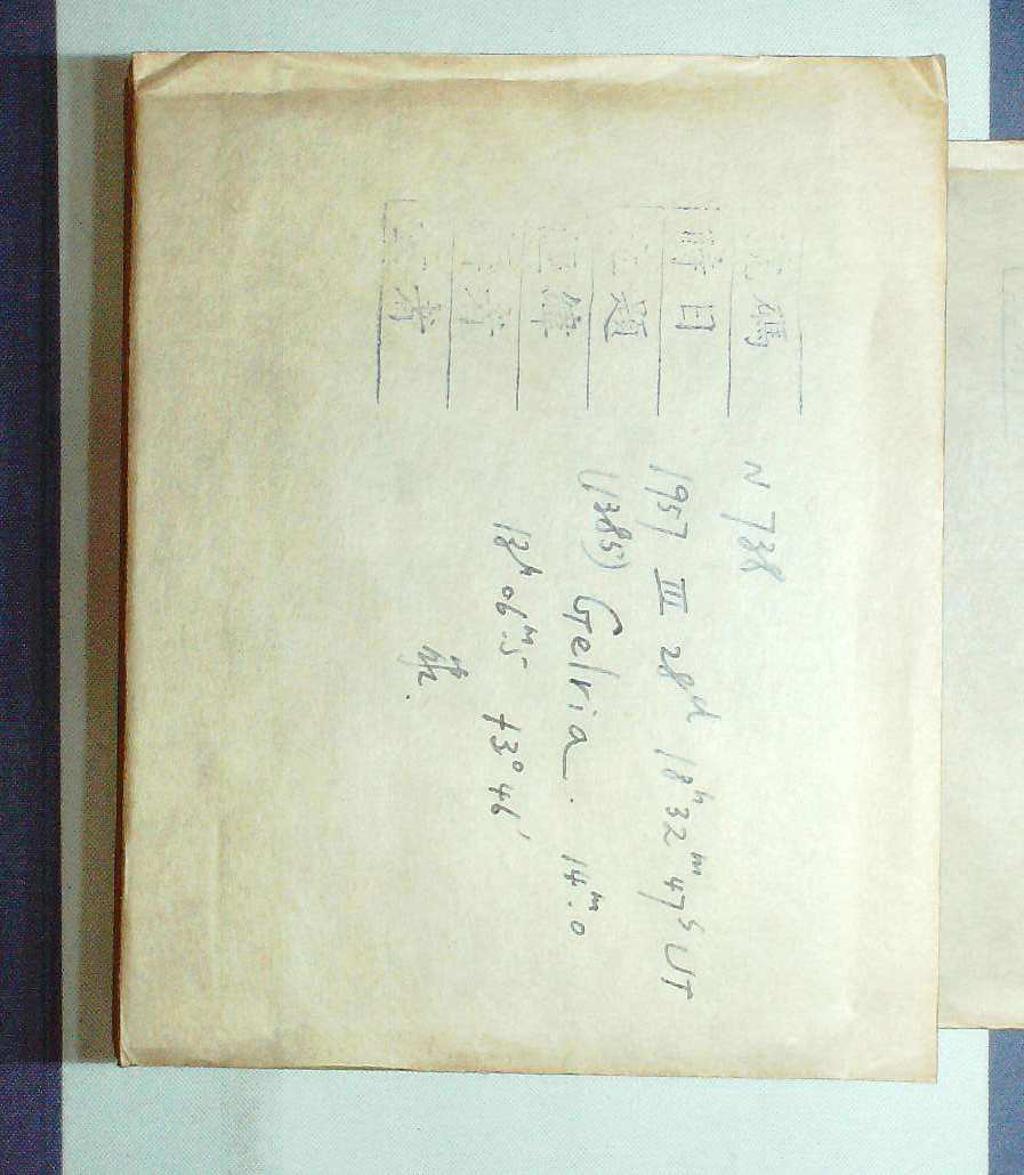 號碼 N 738
時日 1957 III 28d 18h32m47s UT
題 (1385) Gelria. 14m.0
經緯 13h06m.5 +3°46'
者